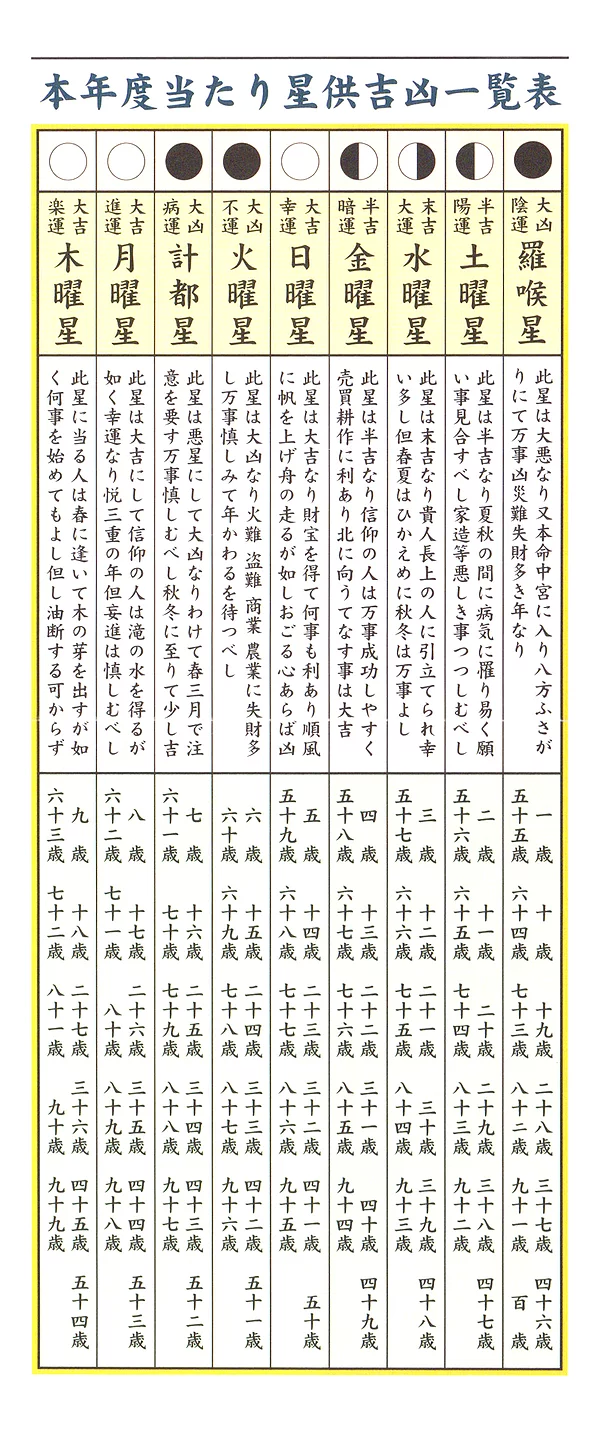 本年度当たり星供吉凶一覧表
大凶
陰運
羅睺星
此星は大悪なり又本命中宮に入り八方ふさが
りにて万事凶災難失財多き年なり
一歳 十歳 十九歳 二十八歳 三十七歳 四十六歳
五十五歳 六十四歳 七十三歳 八十二歳 九十一歳 百歳
半吉
陽運
土曜星
此星は半吉なり夏秋の間に病気に罹り易く願
い事見合すべし家造等悪しき事つつしむべし
二歳 十一歳 二十歳 二十九歳 三十八歳 四十七歳
五十六歳 六十五歳 七十四歳 八十三歳 九十二歳
末吉
大運
水曜星
此星は末吉なり貴人長上の人に引立てられ幸
い多し但春夏はひかえめに秋冬は万事よし
三歳 十二歳 二十一歳 三十歳 三十九歳 四十八歳
五十七歳 六十六歳 七十五歳 八十四歳 九十三歳
半吉
暗運
金曜星
此星は半吉なり信仰の人は万事成功しやすく
売買耕作に利あり北に向うてなす事は大吉
四歳 十三歳 二十二歳 三十一歳 四十歳 四十九歳
五十八歳 六十七歳 七十六歳 八十五歳 九十四歳
大吉
幸運
日曜星
此星は大吉なり財宝を得て何事も利あり順風
に帆を上げ舟の走るが如しおごる心あらば凶
五歳 十四歳 二十三歳 三十二歳 四十一歳 五十歳
五十九歳 六十八歳 七十七歳 八十六歳 九十五歳
大凶
不運
火曜星
此星は大凶なり火難 盗難 商業 農業に失財多
し万事慎しみて年かわるを待つべし
六歳 十五歳 二十四歳 三十三歳 四十二歳 五十一歳
六十歳 六十九歳 七十八歳 八十七歳 九十六歳
大凶
病運
計都星
此星は悪星にして大凶なりわけて春三月で注
意を要す万事慎しむべし秋冬に至りて少し吉
七歳 十六歳 二十五歳 三十四歳 四十三歳 五十二歳
六十一歳 七十歳 七十九歳 八十八歳 九十七歳
大吉
進運
月曜星
此星は大吉にして信仰の人は滝の水を得るが
如く幸運なり悦三重の年但妄進は慎しむべし
八歳 十七歳 二十六歳 三十五歳 四十四歳 五十三歳
六十二歳 七十一歳 八十歳 八十九歳 九十八歳
大吉
楽運
木曜星
此星に当る人は春に逢いて木の芽を出すが如
く何事を始めてもよし但し油断する可からず
九歳 十八歳 二十七歳 三十六歳 四十五歳 五十四歳
六十三歳 七十二歳 八十一歳 九十歳 九十九歳